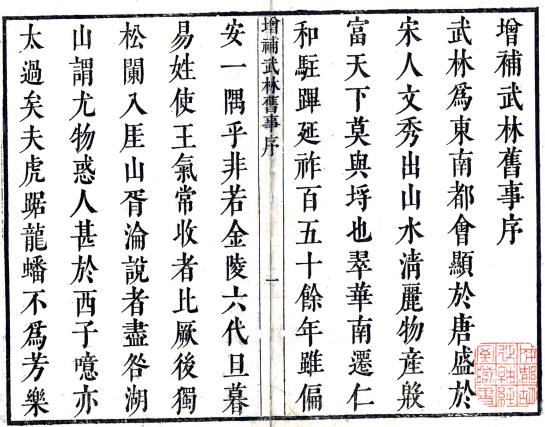 增補武林舊事序
武林爲東南都會顯於唐盛於
宋人文秀出山水淸麗物産殷
富天下莫與埒也翠華南遷仁
和駐蹕延祚百五十餘年雖偏
增補武林舊事序
一
安一隅乎非若金陵六代旦暮
易姓使王氣常收者比厥後獨
松闌入厓山胥淪說者盡咎湖
山謂尤物惑人甚於西子噫亦
太過矣夫虎踞龍蟠不爲芳樂